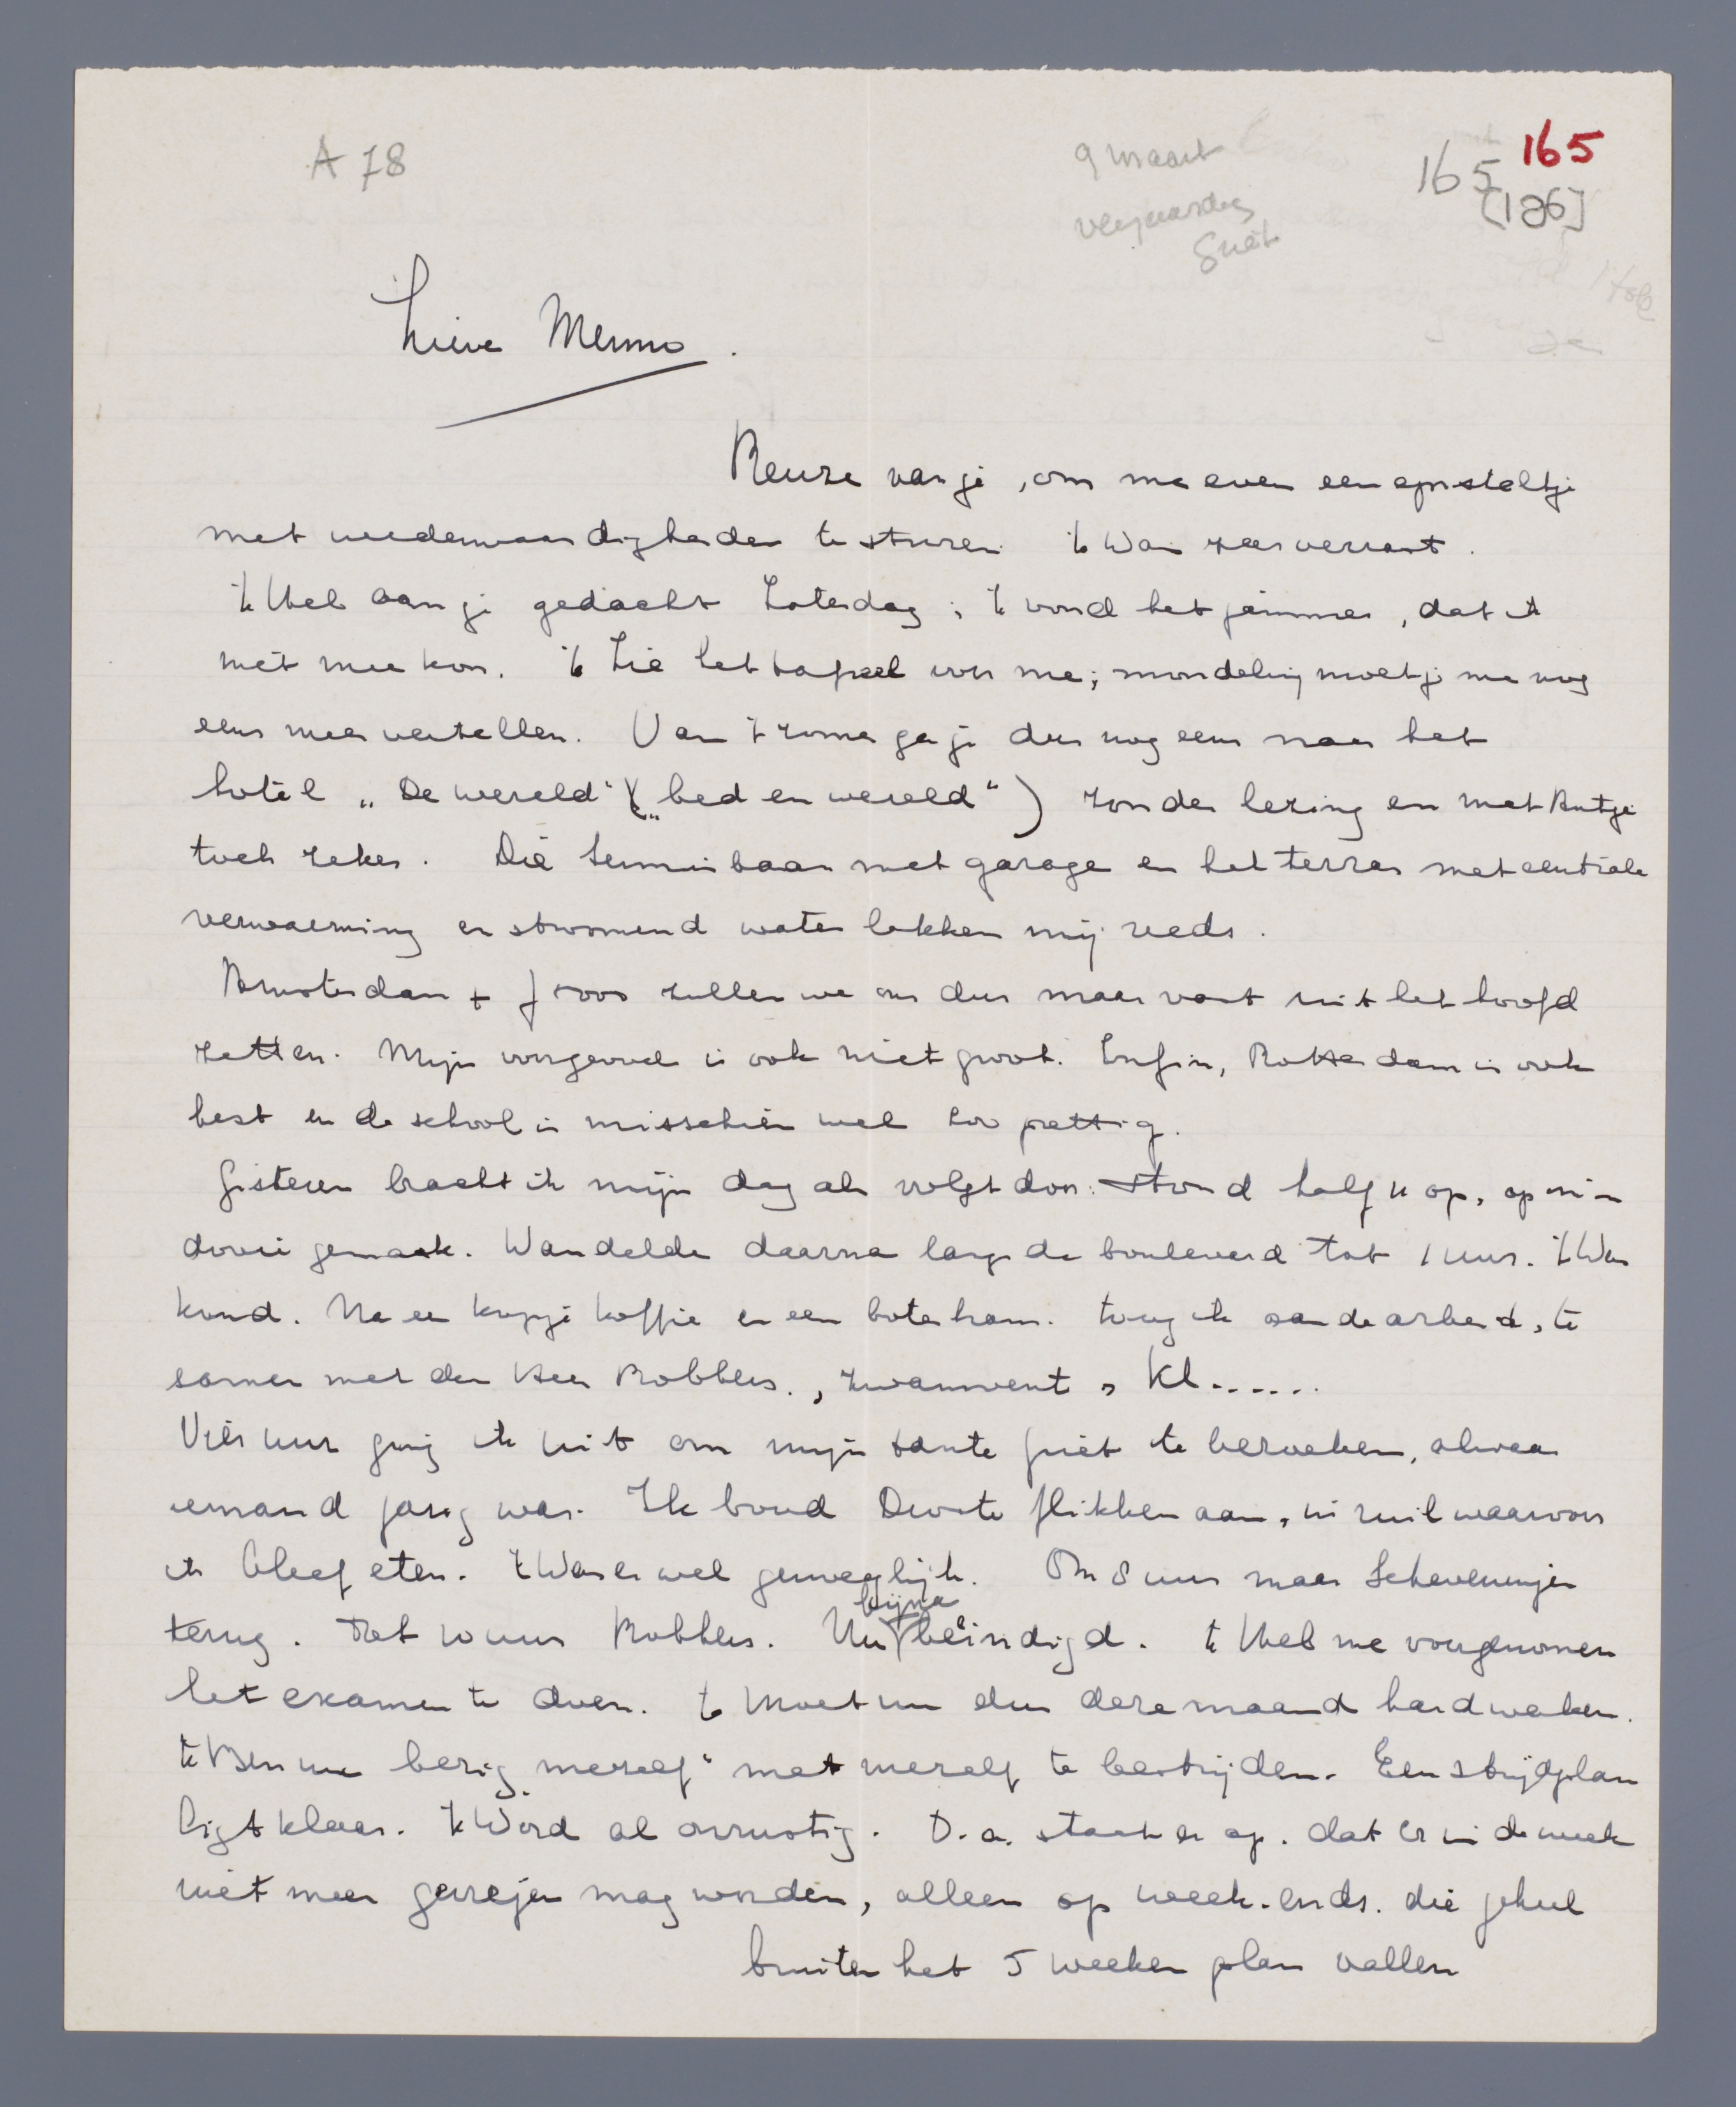 A 78
9 maart
verjaardag
Guét
165
165
[126]
Lieve Menno.
Reuze van je, om me even een epısteltje
met wederwaardigheden te sturen. 'k Was zeer verrast.
'k Heb aan je gedacht Zaterdag; 'k vond het jammer, dat ik
niet mee kon. 'k Zie het tafreel voor me; mondeling moet je me nog
eens meer vertellen. Van 't zomer ga je dus nog eens naar het
hotel „De wereld" („bed en wereld") zonder lezing en met Antje
toch zeker. Die tennisbaan met garage en het terras met centrale
verwarming en stromend water lokken mij reeds.
Amsterdam + Joos zullen we ons dus maar vast uit het hoofd
zetten. Mijn voorgevoel is ook niet groot. Enfin, Rotterdam is ook
best en de school is misschien wel zoo prettig.
Gisteren bracht ik mijn dag als volgt door: stond half 11 op, op m'n
dooie gemaak. Wandelde daarna langs de boulevard tot 1 uur. 't Was
koud. Na een kopje koffie en een boterham. toog ik aan de arbeid, te
samen met den Heer Robbers., zwamvent, kl......
Vier uur ging ik uit om mijn tante Juet te bezoeken, alwaar
iemand jarig was. Ik bood Droste flikken aan, in ruil waarvoor
ik bleef eten. 't Was er wel genoeglijk. Om 8 uur naar Scheveningen
terug. Tot 10 uur Robbers. Nu bijna beëindigd. 'k Heb me voorgenomen
het examen te doen. 'k Moet nu dus deze maand hard werken.
'k Ben nu bezig mezelf met mezelf te bestrijden. Een strijdplan
ligt klaar. 'k Word al onrustig. D.a. staat er op. dat er in de week
niet meer gereejen mag worden, alleen op week-ends. die geheel
buiten het 5 weeken plan vallen